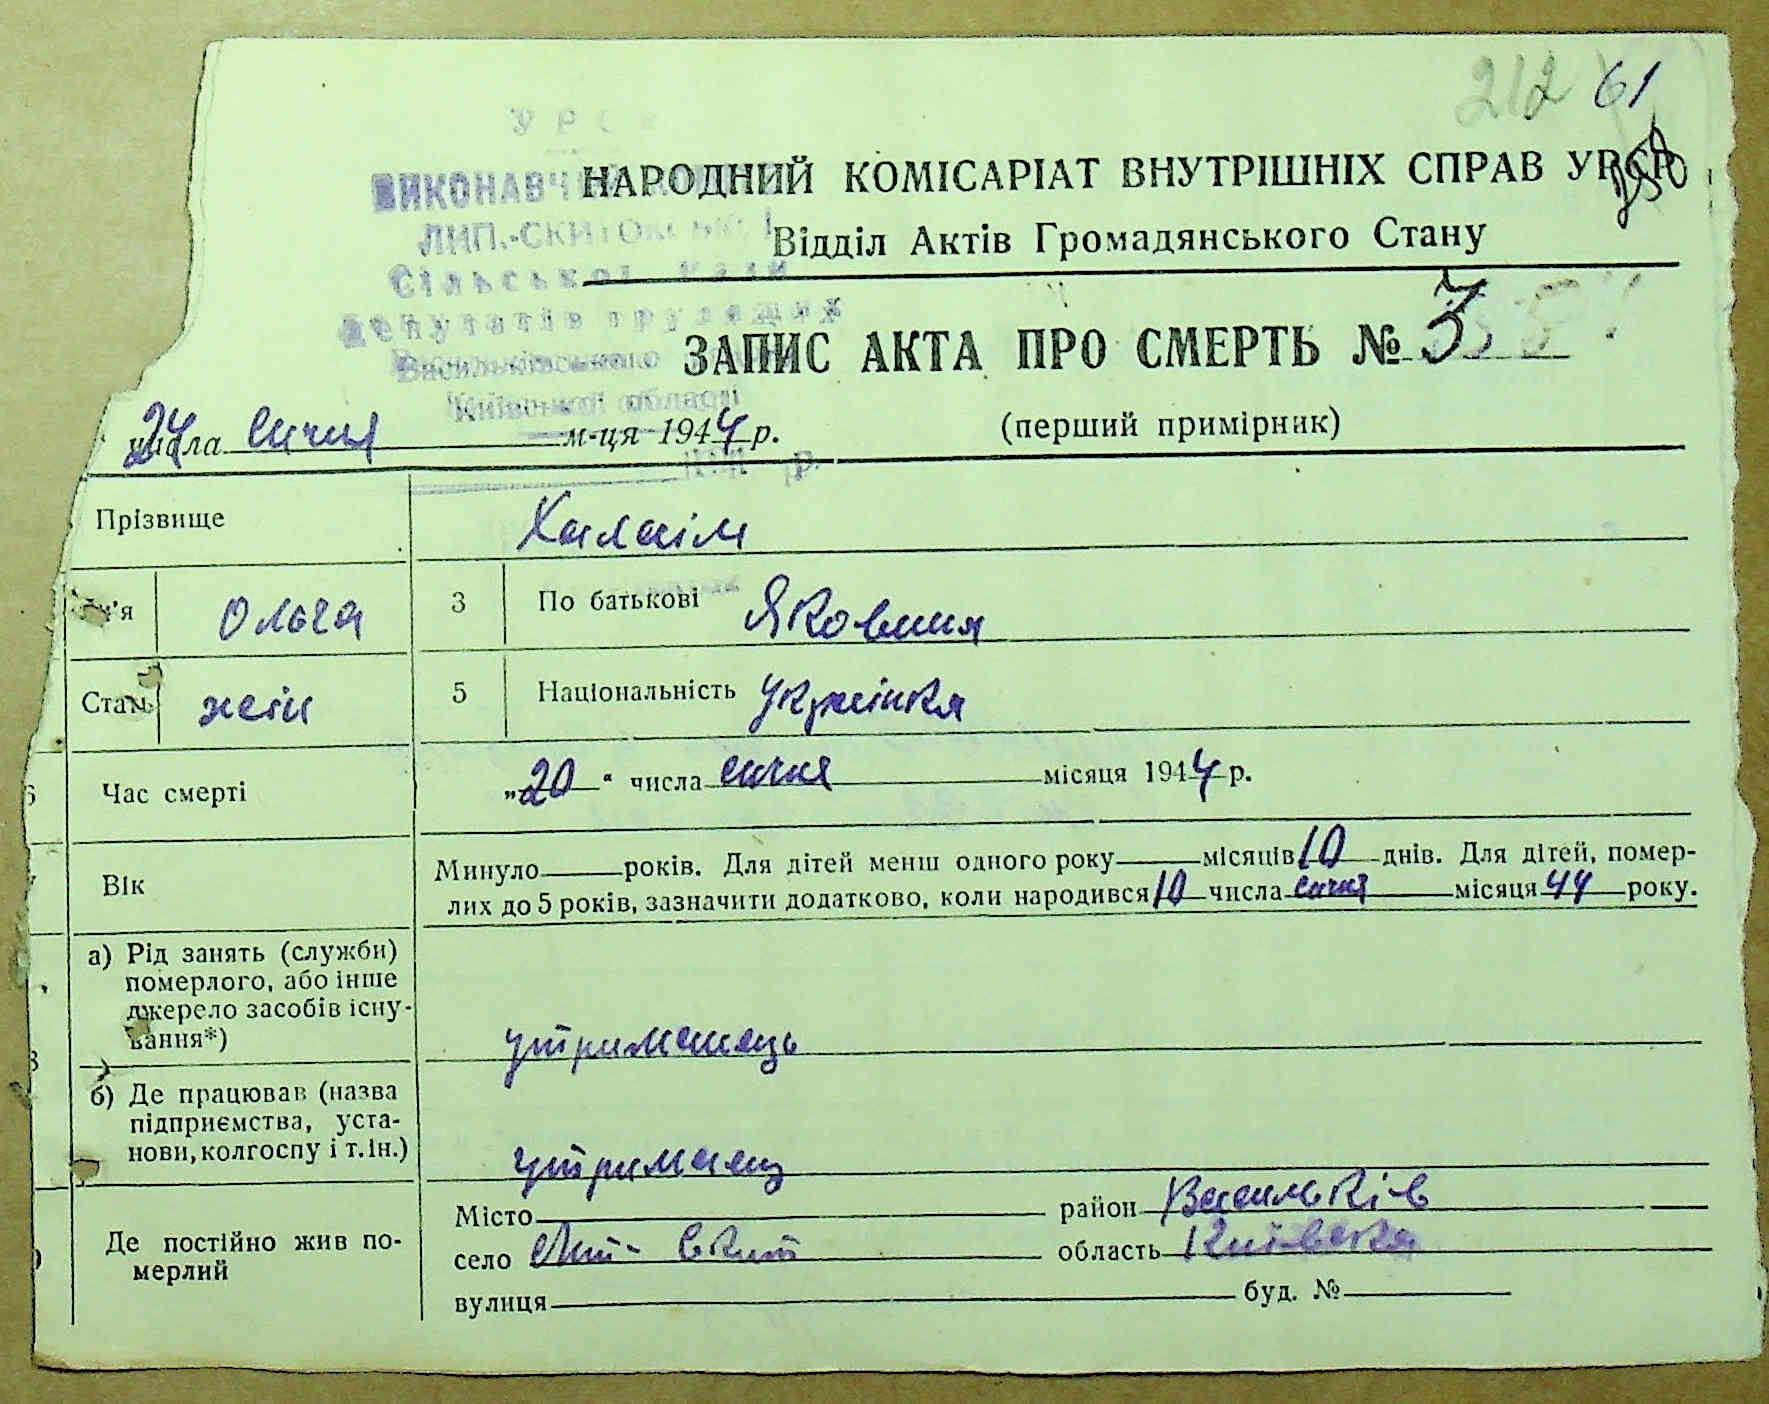 212 61
УРС
ВИКОНАВЧ
НАРОДНИЙ КОМІСАРІАТ ВНУТРІШНІХ СПРАВ УРСР
ЛИП.-СКИТОКСЬКОЇ
Відділ Актів Громадянського Стану
Сільської Ради
депутатів трудящих
ЗАПИС АКТА ПРО СМЕРТЬ № 3
Васильківського
Київської області
24 числа січня м-ця 1944 р. (перший примірник)
Прізвище Халаім
Ім'я Ольга 3 По батькові Яковна
Стать жін 5 Національність Українка
6 Час смерті „20“ числа січня місяця 1944 р.
7 Вік Минуло року. Для дітей менш одного року місяців 10 днів. Для дітей, помер-
лих до 5 років, зазначити додатково, коли народився 10 числа січня місяця 44 року.
а) Рід занять (служби)
померлого, або інше
джерело засобів існу-
вання*) утриманець
8
б) Де працював (назва
підприємства, уста-
нови, колгоспу і т. ін.) утриманец
Місто район Васильків
Де постійно жив по-
мерлий
село Лип-Скит область Київська
вулиця буд. №